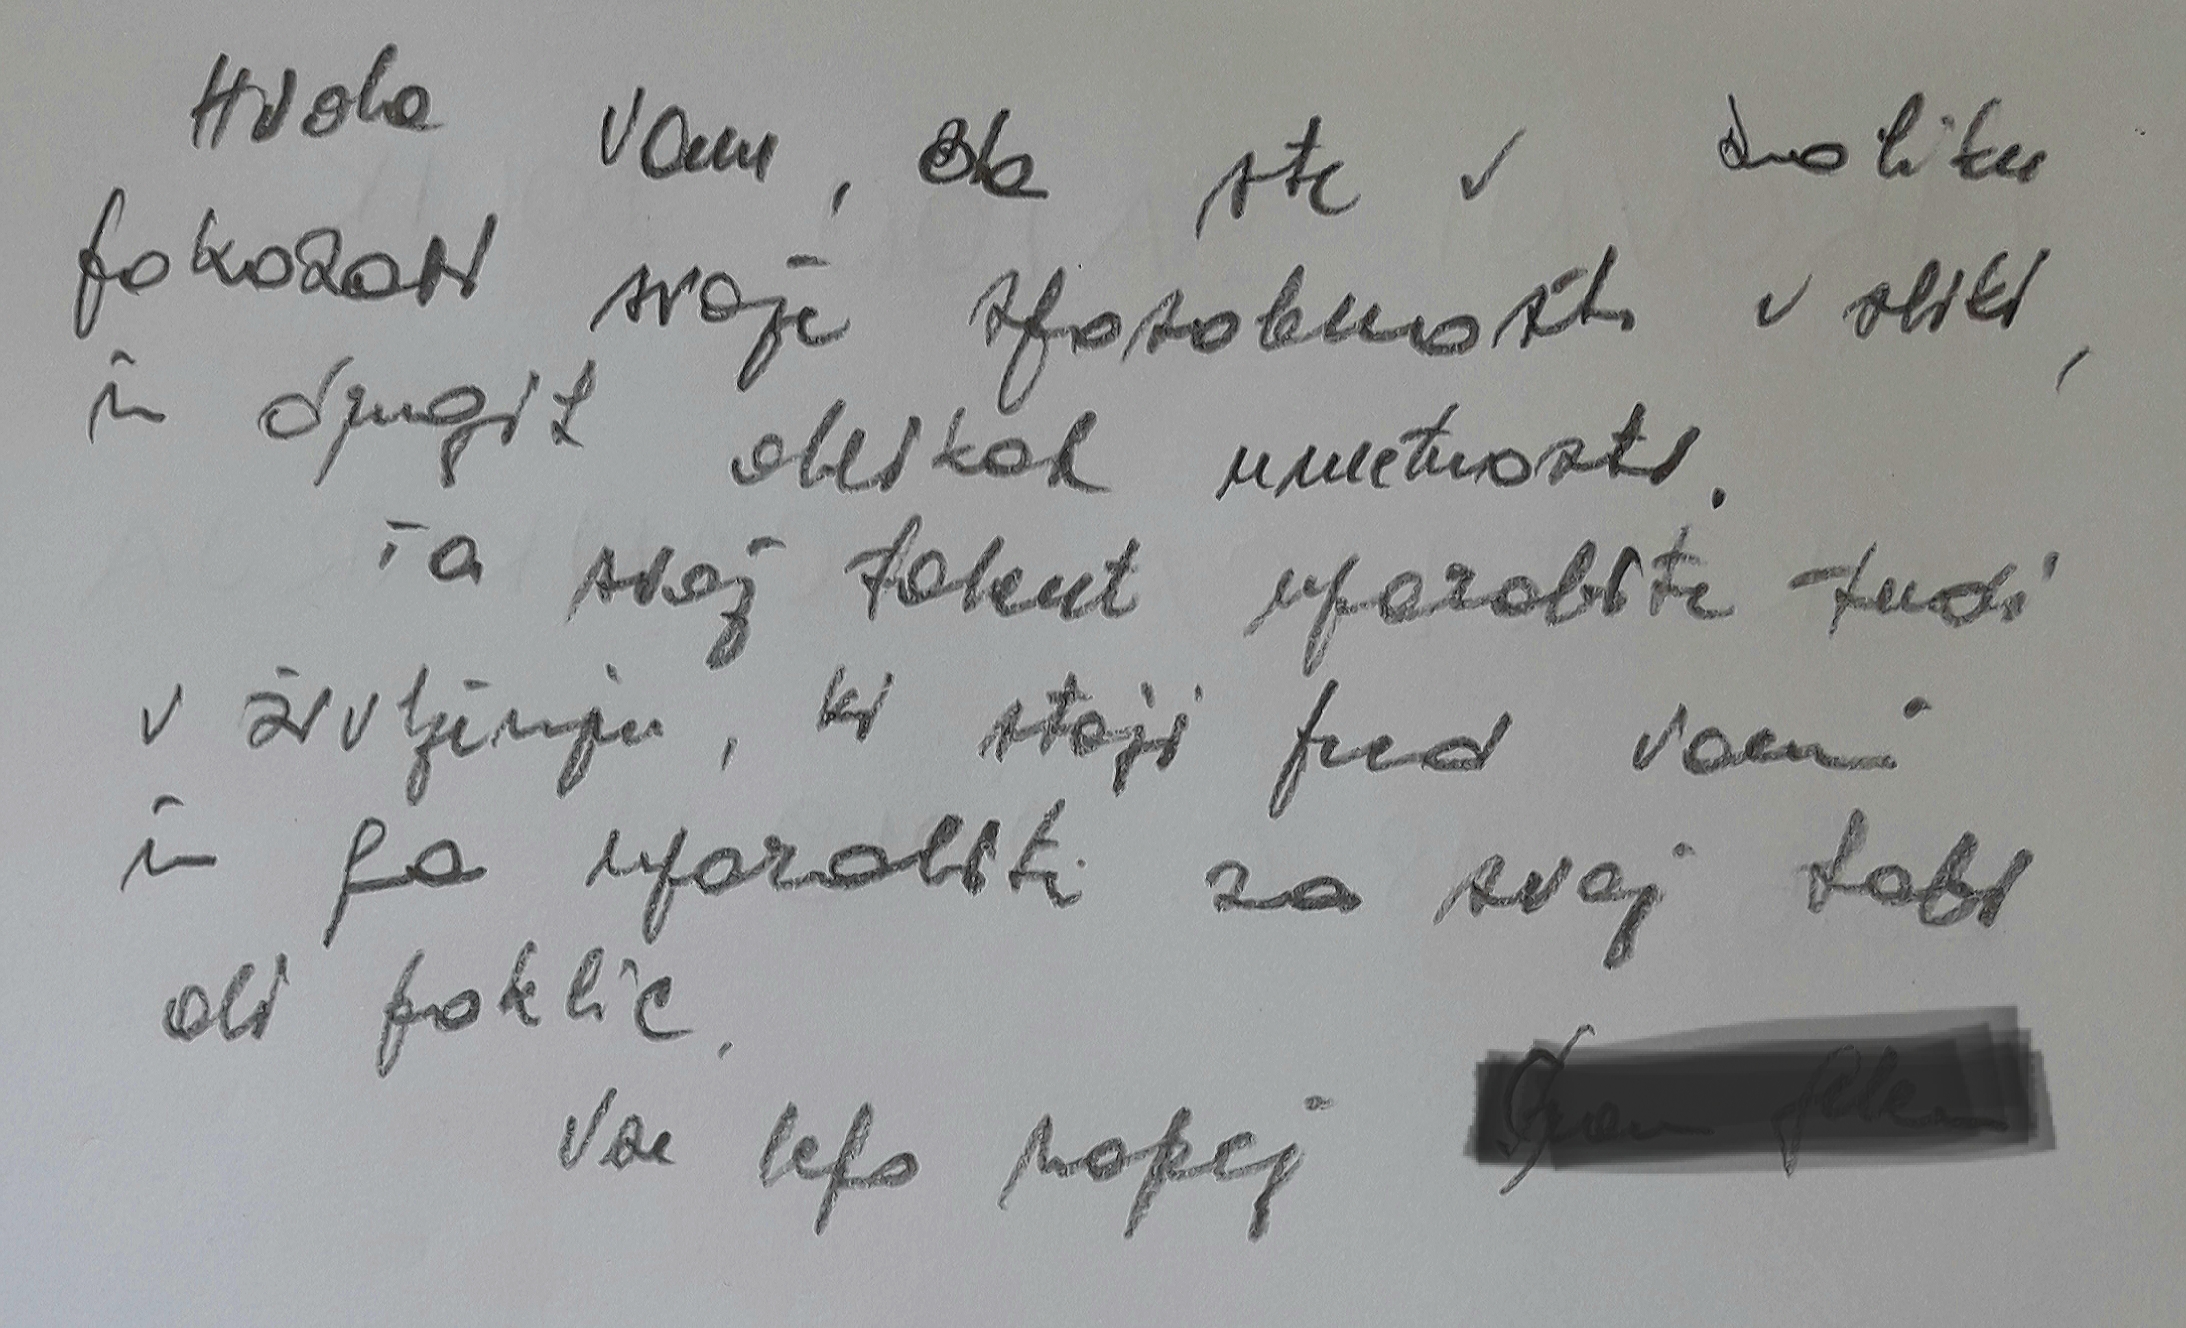 Hvala Vam, da ste v
pokazati svoje sposobnosti v sliki,
in drugih oblikah umetnosti.
Ta svoj talent uporabite tudi
v življenju, ki stoji pred vami
in ga uporabite za svoj hobi
ali poklic.
Vse lepo naprej